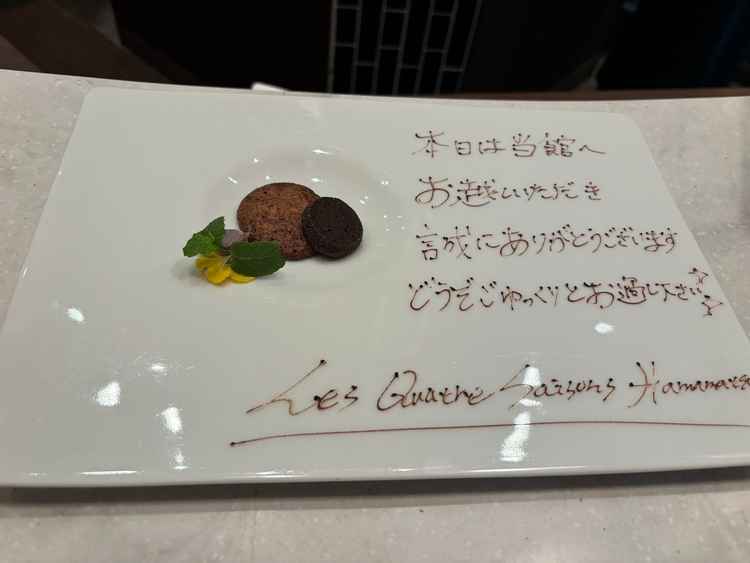 本日は当館へ
お越しいただき
誠にありがとうございます
どうぞごゆっくりとお過し下さい
Les Quatre Saisons Hamamatsu